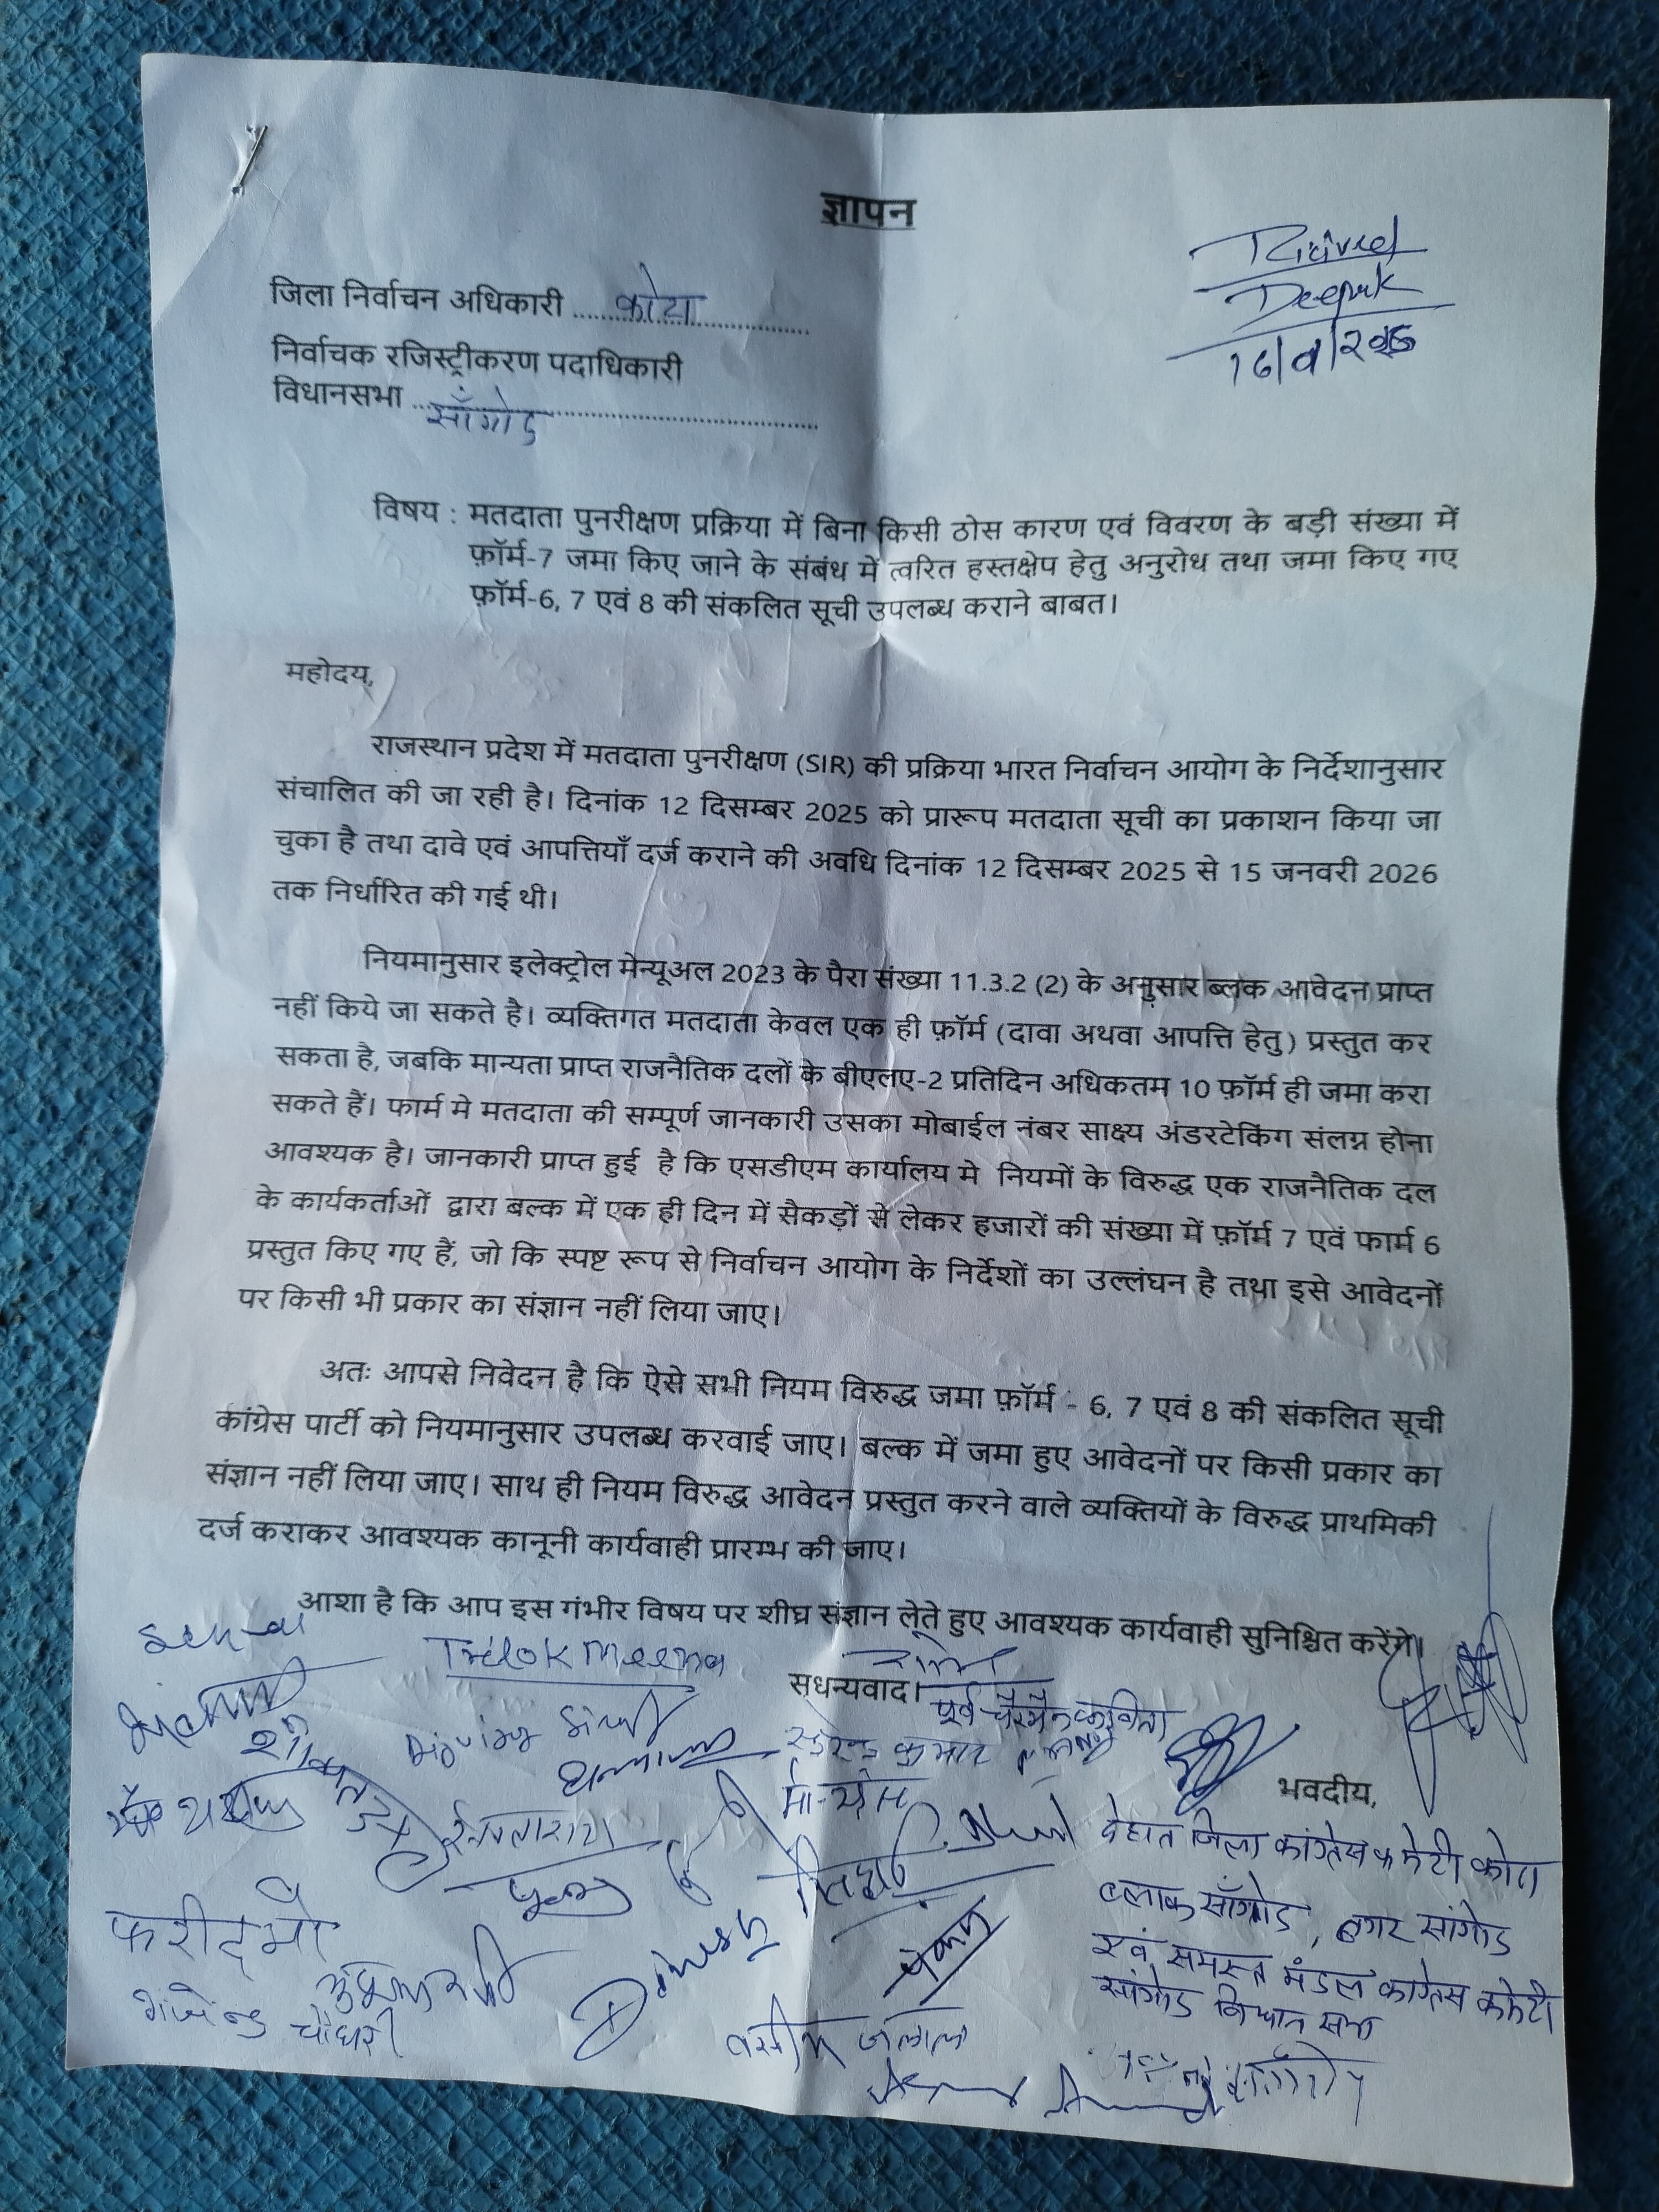 ज्ञापन
Deepak
जिला निर्वाचन अधिकारी ..... कोटा .....
निर्वाचक रजिस्ट्रीकरण पदाधिकारी
विधानसभा ..... साँगोद .....
विषय : मतदाता पुनरीक्षण प्रक्रिया में बिना किसी ठोस कारण एवं विवरण के बड़ी संख्या में
फ़ॉर्म-7 जमा किए जाने के संबंध में त्वरित हस्तक्षेप हेतु अनुरोध तथा जमा किए गए
फ़ॉर्म-6, 7 एवं 8 की संकलित सूची उपलब्ध कराने बाबत।
महोदय,
राजस्थान प्रदेश में मतदाता पुनरीक्षण (SIR) की प्रक्रिया भारत निर्वाचन आयोग के निर्देशानुसार
संचालित की जा रही है। दिनांक 12 दिसम्बर 2025 को प्रारूप मतदाता सूची का प्रकाशन किया जा
चुका है तथा दावे एवं आपत्तियाँ दर्ज कराने की अवधि दिनांक 12 दिसम्बर 2025 से 15 जनवरी 2026
तक निर्धारित की गई थी।
नियमानुसार इलेक्ट्रोल मेन्यूअल 2023 के पैरा संख्या 11.3.2 (2) के अनुसार ब्लक आवेदन प्राप्त
नहीं किये जा सकते है। व्यक्तिगत मतदाता केवल एक ही फ़ॉर्म (दावा अथवा आपत्ति हेतु) प्रस्तुत कर
सकता है, जबकि मान्यता प्राप्त राजनैतिक दलों के बीएलए-2 प्रतिदिन अधिकतम 10 फ़ॉर्म ही जमा करा
सकते हैं। फार्म मे मतदाता की सम्पूर्ण जानकारी उसका मोबाईल नंबर साक्ष्य अंडरटेकिंग संलग्न होना
आवश्यक है। जानकारी प्राप्त हुई है कि एसडीएम कार्यालय मे नियमों के विरुद्ध एक राजनैतिक दल
के कार्यकर्ताओं द्वारा बल्क में एक ही दिन में सैकड़ों से लेकर हजारों की संख्या में फ़ॉर्म 7 एवं फार्म 6
प्रस्तुत किए गए हैं, जो कि स्पष्ट रूप से निर्वाचन आयोग के निर्देशों का उल्लंघन है तथा इसे आवेदनों
पर किसी भी प्रकार का संज्ञान नहीं लिया जाए।
अतः आपसे निवेदन है कि ऐसे सभी नियम विरुद्ध जमा फ़ॉर्म - 6, 7 एवं 8 की संकलित सूची
कांग्रेस पार्टी को नियमानुसार उपलब्ध करवाई जाए। बल्क में जमा हुए आवेदनों पर किसी प्रकार का
संज्ञान नहीं लिया जाए। साथ ही नियम विरुद्ध आवेदन प्रस्तुत करने वाले व्यक्तियों के विरुद्ध प्राथमिकी
दर्ज कराकर आवश्यक कानूनी कार्यवाही प्रारम्भ की जाए।
आशा है कि आप इस गंभीर विषय पर शीघ्र संज्ञान लेते हुए आवश्यक कार्यवाही सुनिश्चित करेंगे।
Trilok Meena
सधन्यवाद।
भवदीय,
देहात जिला कांग्रेस कमेटी कोटा
ब्लाक साँगोद, नगर सांगोद
एवं समस्त मंडल कांग्रेस कमेटी
सांगोद विधान सभा
फरीद
Dinesh
गजेन्द्र चौधरी
वसीम जलाल